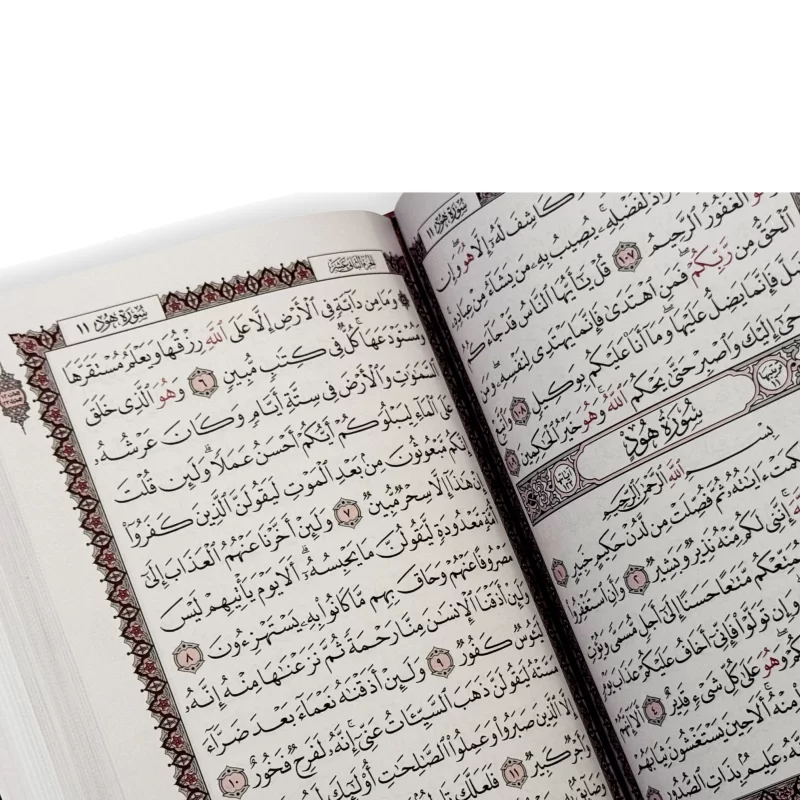 سُورَةُ هُودٍ ١١
كَاشِفَ لَهُۥٓ إِلَّا هُوَۖ وَإِن
لِفَضْلِهِۦۚ يُصِيبُ بِهِۦ مَن يَشَآءُ مِنْ
ٱلْغَفُورُ ٱلرَّحِيمُ ١٠٧ قُلْ يَٰٓأَيُّهَا ٱلنَّاسُ قَدْ جَآءَكُمُ
ٱلْحَقُّ مِن رَّبِّكُمْۖ فَمَنِ ٱهْتَدَىٰ فَإِنَّمَا يَهْتَدِى لِنَفْسِهِۦۖ وَمَن
فَإِنَّمَا يَضِلُّ عَلَيْهَاۖ وَمَآ أَنَا۠ عَلَيْكُم بِوَكِيلٍ ١٠٨ وَٱتَّبِعْ
إِلَيْكَ وَٱصْبِرْ حَتَّىٰ يَحْكُمَ ٱللَّهُۚ وَهُوَ خَيْرُ ٱلْحَٰكِمِينَ ١٠٩
سُورَةُ هُودٍ
بِسْمِ ٱللَّهِ ٱلرَّحْمَٰنِ ٱلرَّحِيمِ
ءَايَٰتُهُۥ ثُمَّ فُصِّلَتْ مِن لَّدُنْ حَكِيمٍ خَبِيرٍ ١
إِنَّنِى لَكُم مِّنْهُ نَذِيرٌ وَبَشِيرٌ ٢ وَأَنِ ٱسْتَغْفِرُوا۟
مَّتَٰعًا حَسَنًا إِلَىٰٓ أَجَلٍ مُّسَمًّى وَيُؤْتِ
وَإِن تَوَلَّوْا۟ فَإِنِّىٓ أَخَافُ عَلَيْكُمْ عَذَابَ يَوْمٍ
وَهُوَ عَلَىٰ كُلِّ شَىْءٍ قَدِيرٌ ٤ أَلَآ إِنَّهُمْ
مِنْهُۚ أَلَا حِينَ يَسْتَغْشُونَ ثِيَابَهُمْ
عَلِيمٌۢ بِذَاتِ ٱلصُّدُورِ
ٱلْجُزْءُ ٱلثَّانِى عَشَرَ
سُورَةُ هُودٍ ١١
وَمَا مِن دَآبَّةٍ فِى ٱلْأَرْضِ إِلَّا عَلَى ٱللَّهِ رِزْقُهَا وَيَعْلَمُ مُسْتَقَرَّهَا
وَمُسْتَوْدَعَهَاۚ كُلٌّ فِى كِتَٰبٍ مُّبِينٍ ٦ وَهُوَ ٱلَّذِى خَلَقَ
ٱلسَّمَٰوَٰتِ وَٱلْأَرْضَ فِى سِتَّةِ أَيَّامٍ وَكَانَ عَرْشُهُۥ
عَلَى ٱلْمَآءِ لِيَبْلُوَكُمْ أَيُّكُمْ أَحْسَنُ عَمَلًاۗ وَلَئِن قُلْتَ
إِنَّكُم مَّبْعُوثُونَ مِنۢ بَعْدِ ٱلْمَوْتِ لَيَقُولَنَّ ٱلَّذِينَ كَفَرُوٓا۟
إِنْ هَٰذَآ إِلَّا سِحْرٌ مُّبِينٌ ٧ وَلَئِنْ أَخَّرْنَا عَنْهُمُ ٱلْعَذَابَ إِلَىٰٓ
أُمَّةٍ مَّعْدُودَةٍ لَّيَقُولُنَّ مَا يَحْبِسُهُۥٓۗ أَلَا يَوْمَ يَأْتِيهِمْ لَيْسَ
مَصْرُوفًا عَنْهُمْ وَحَاقَ بِهِم مَّا كَانُوا۟ بِهِۦ يَسْتَهْزِءُونَ ٨
وَلَئِنْ أَذَقْنَا ٱلْإِنسَٰنَ مِنَّا رَحْمَةً ثُمَّ نَزَعْنَٰهَا مِنْهُ إِنَّهُۥ
لَيَـُٔوسٌ كَفُورٌ ٩ وَلَئِنْ أَذَقْنَٰهُ نَعْمَآءَ بَعْدَ ضَرَّآءَ
مَسَّتْهُ لَيَقُولَنَّ ذَهَبَ ٱلسَّيِّـَٔاتُ عَنِّىٓۚ إِنَّهُۥ لَفَرِحٌ فَخُورٌ ١٠
إِلَّا ٱلَّذِينَ صَبَرُوا۟ وَعَمِلُوا۟ ٱلصَّٰلِحَٰتِ أُو۟لَٰٓئِكَ
وَأَجْرٌ كَبِيرٌ ١١ فَلَعَلَّكَ